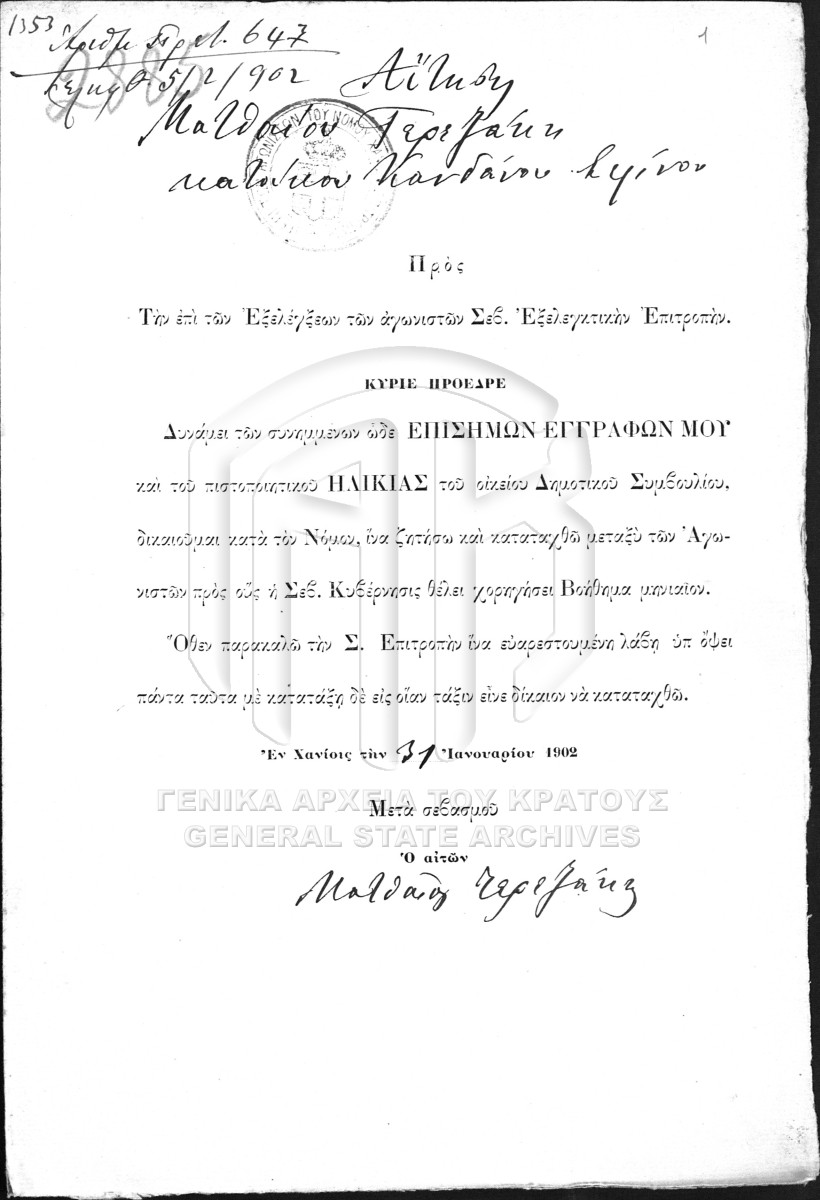 1353
Ἀριθ. Πρωτ. 647
5/2/902
2886
1
Αἴτησις
Ματθαίου Τερεζάκη
κατοίκου Κανδάνου Σελίνου
Πρὸς
Τὴν ἐπὶ τῶν Ἐξελέγξεων τῶν ἀγωνιστῶν Σεβ. Ἐξελεγκτικὴν Ἐπιτροπὴν.
ΚΥΡΙΕ ΠΡΟΕΔΡΕ
Δυνάμει τῶν συνημμένων ὧδε ΕΠΙΣΗΜΩΝ ΕΓΓΡΑΦΩΝ ΜΟΥ
καὶ τοῦ πιστοποιητικοῦ ΗΛΙΚΙΑΣ τοῦ οἰκείου Δημοτικοῦ Συμβουλίου,
δικαιοῦμαι κατὰ τὸν Νόμον, ἵνα ζητήσω καὶ καταταχθῶ μεταξὺ τῶν Ἀγω-
νιστῶν πρὸς οὓς ἡ Σεβ. Κυβέρνησις θέλει χορηγήσει Βοήθημα μηνιαῖον.
Ὅθεν παρακαλῶ τὴν Σ. Ἐπιτροπὴν ἵνα εὐαρεστουμένη λάβῃ ὑπ ὄψει
πάντα ταῦτα μὲ κατατάξῃ δὲ εἰς οἵαν τάξιν εἶνε δίκαιον νὰ καταταχθῶ.
Ἐν Χανίοις τὴν 31 Ἰανουαρίου 1902
ΓΕΝΙΚΑ ΑΡΧΕΙΑ ΤΟΥ ΚΡΑΤΟΥΣ
Μετὰ σεβασμοῦ
GENERAL STATE ARCHIVES
Ὁ αἰτῶν
Ματθαῖος Τερεζάκης